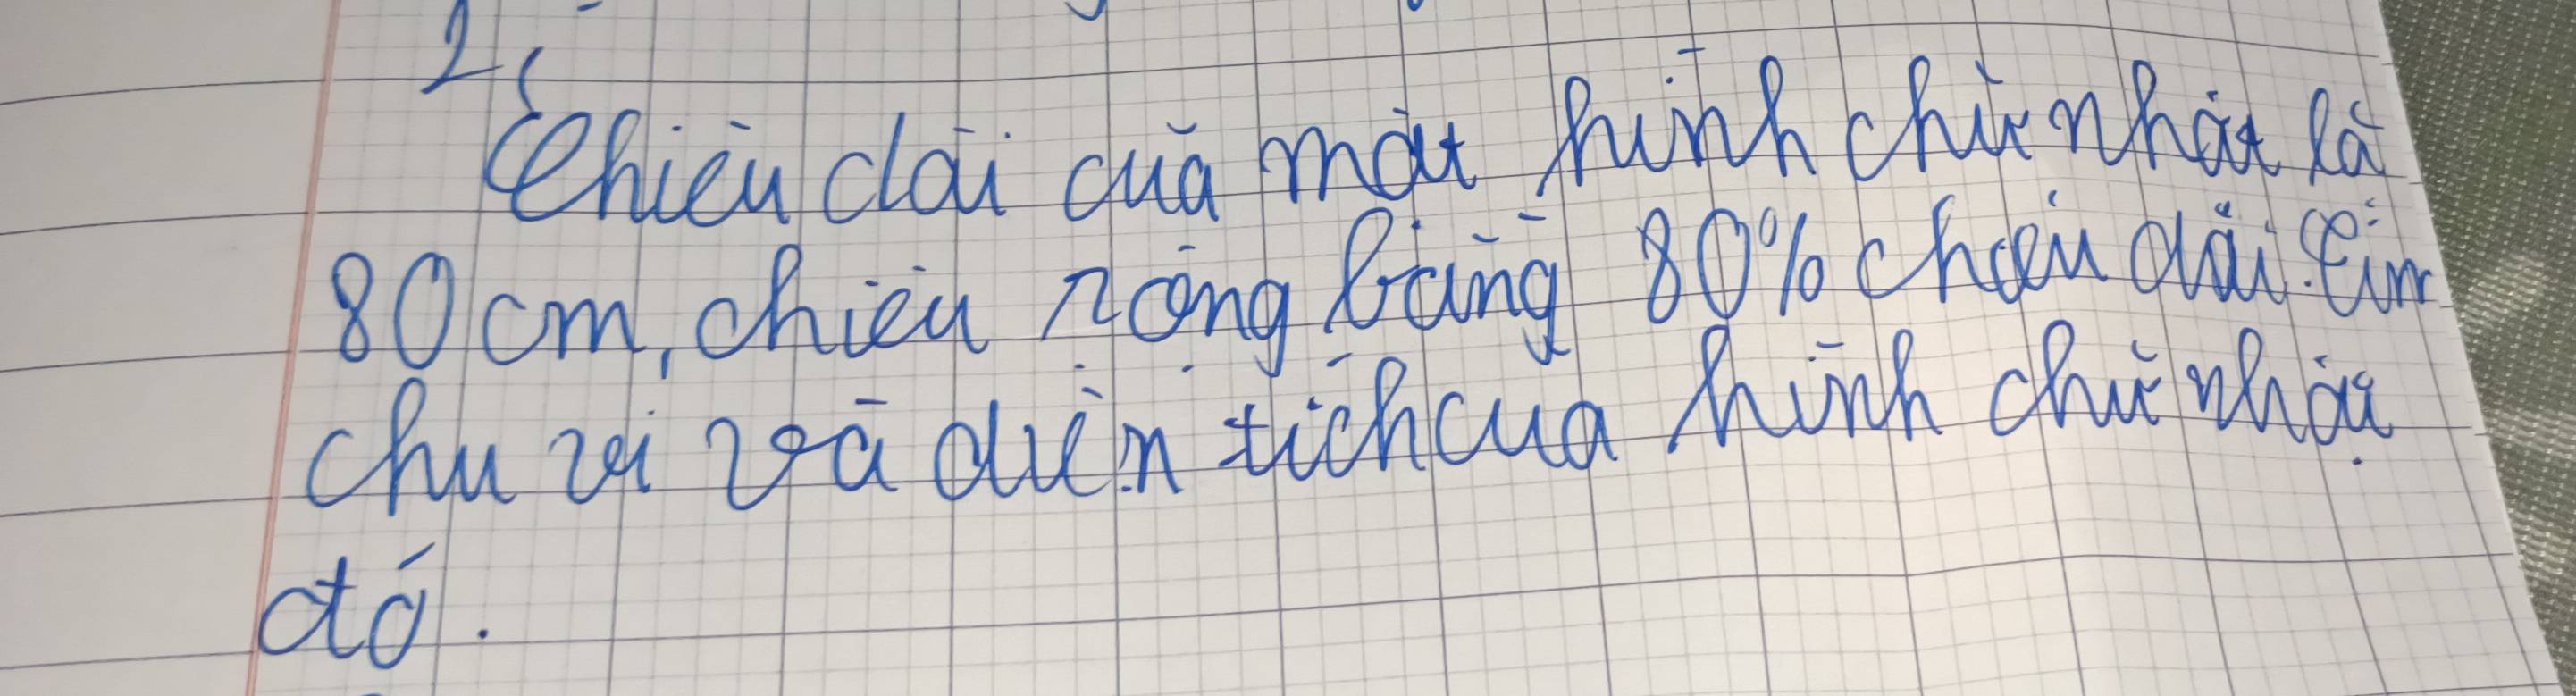 2,
Chiều dài của một hình chữ nhật là
80 cm, chiều rộng bằng 80% chiều dài. Tìm
chu vi và diện tích của hình chữ nhật
đó.